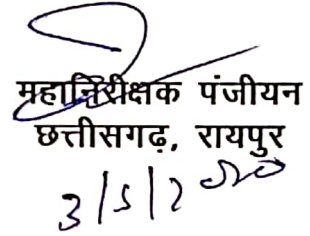 महानिरीक्षक पंजीयन
छत्तीसगढ़, रायपुर
3/5/2020